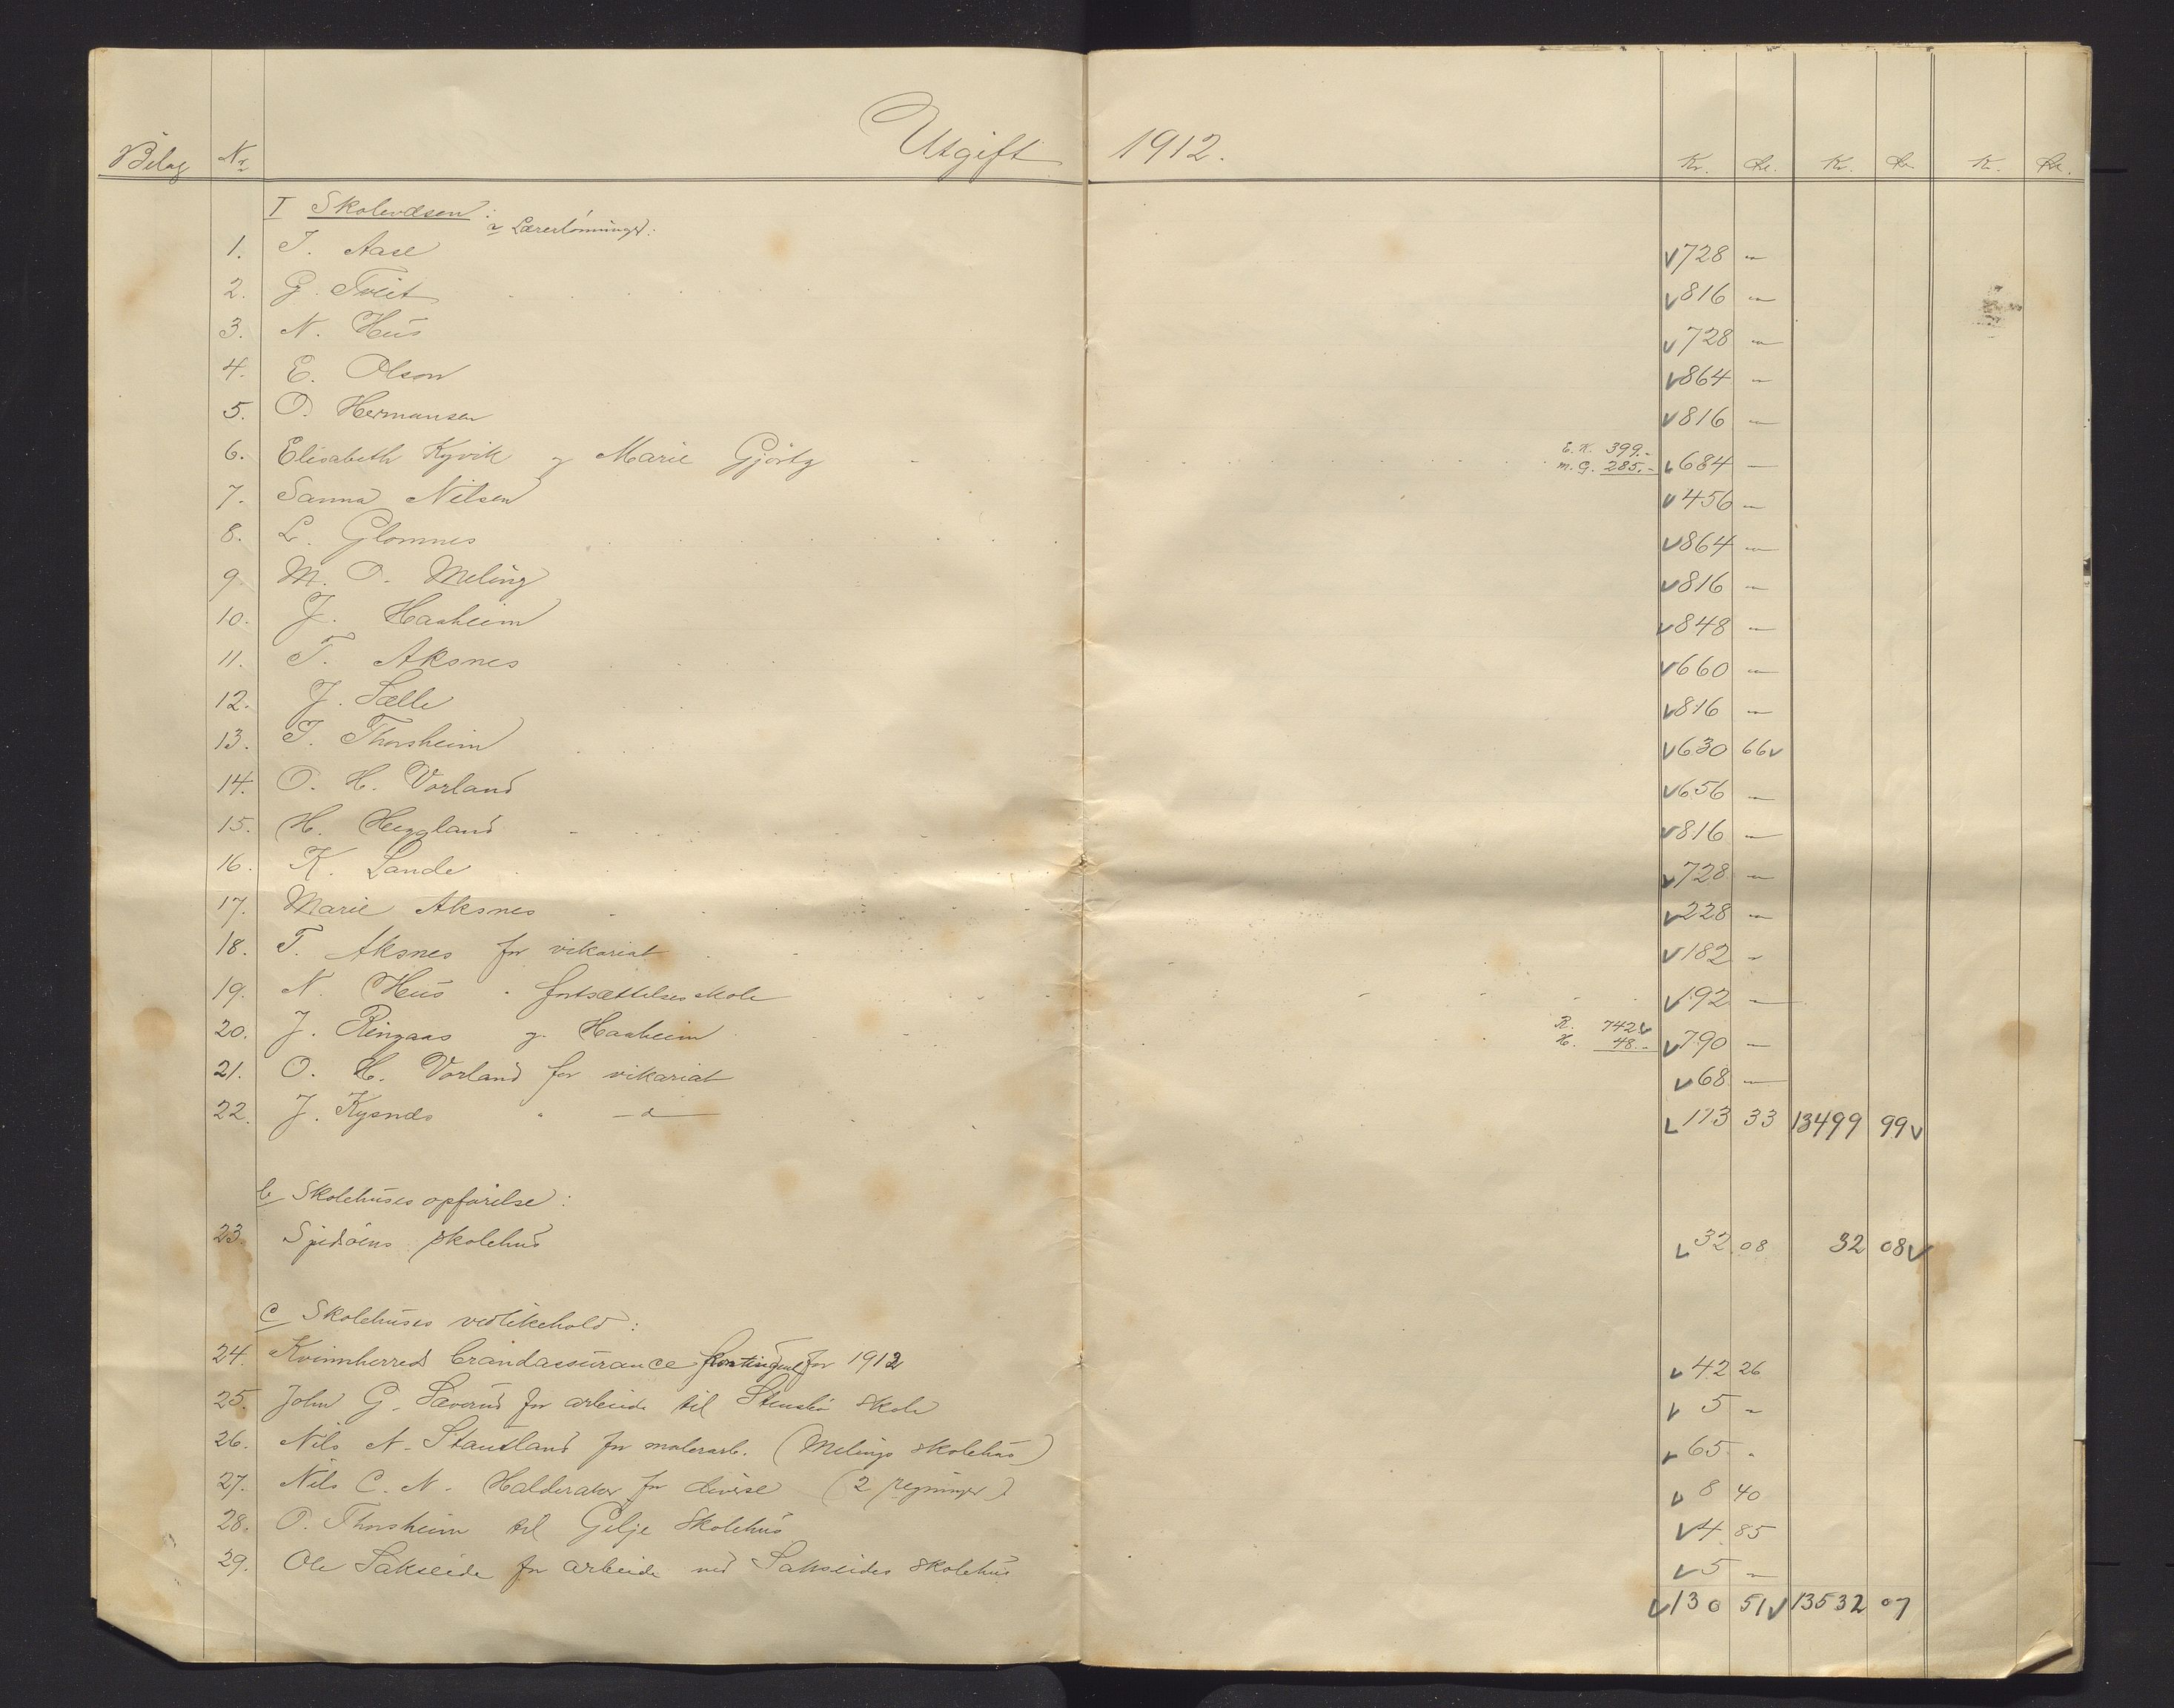 Utgift 1912.
Bilag Nr. Kr. Øre. Kr. Øre Kr. Øre.
I Skolevæsen: a Lærerlønninger:
1. T. Aase 728 -
2. G. Tveit 816 -
3. N. Hus 728 -
4. E. Olson 864 -
5. O. Hermansen 816 -
6. Elisabeth Kyvik og Marie Gjørtz E.K. 399.- M.G. 285.- 684 -
7. Sanna Nilsen 456 -
8. L. Glomnes 864 -
9 M. O. Meling 816 -
10. J. Haaheim 848 -
11. T. Aksnes 660 -
12. J. Sælle 816 -
13. T. Thorsheim 630 66
14. O. H. Vorland 656 -
15. H. Heggland 816 -
16. K. Lande 728 -
17. Marie Aksnes 228 -
18. T. Aksnes for vikariat 182 -
19. N. Hus " fortsættelsesskole 192 -
20. J. Ringaas og Haaheim R. 742 H. 48.- 790 -
21. O. H. Vorland for vikariat 68 -
22. J. Kysnes " -"- 113 33 13499 99
b Skolehuses opførelse:
23. Spidsøens skolehus 32 08 32 08
c Skolehuses vedlikehold:
24. Kvinnherred brandassurance kontingent for 1912 42 26
25. John G. Sæverud for arbeide til Stensbø skole 5 -
26. Nils N. Stautland for malerarb. (Melings skolehus) 65 -
27. Nils C. N. Halderaker for diverse (2 regninger) 8 40
28. O. Thorsheim til Gilje skolehus 4 85
29. Ole Sakseide for arbeide ved Sakseides skolehus 5 -
130 51 13532 07